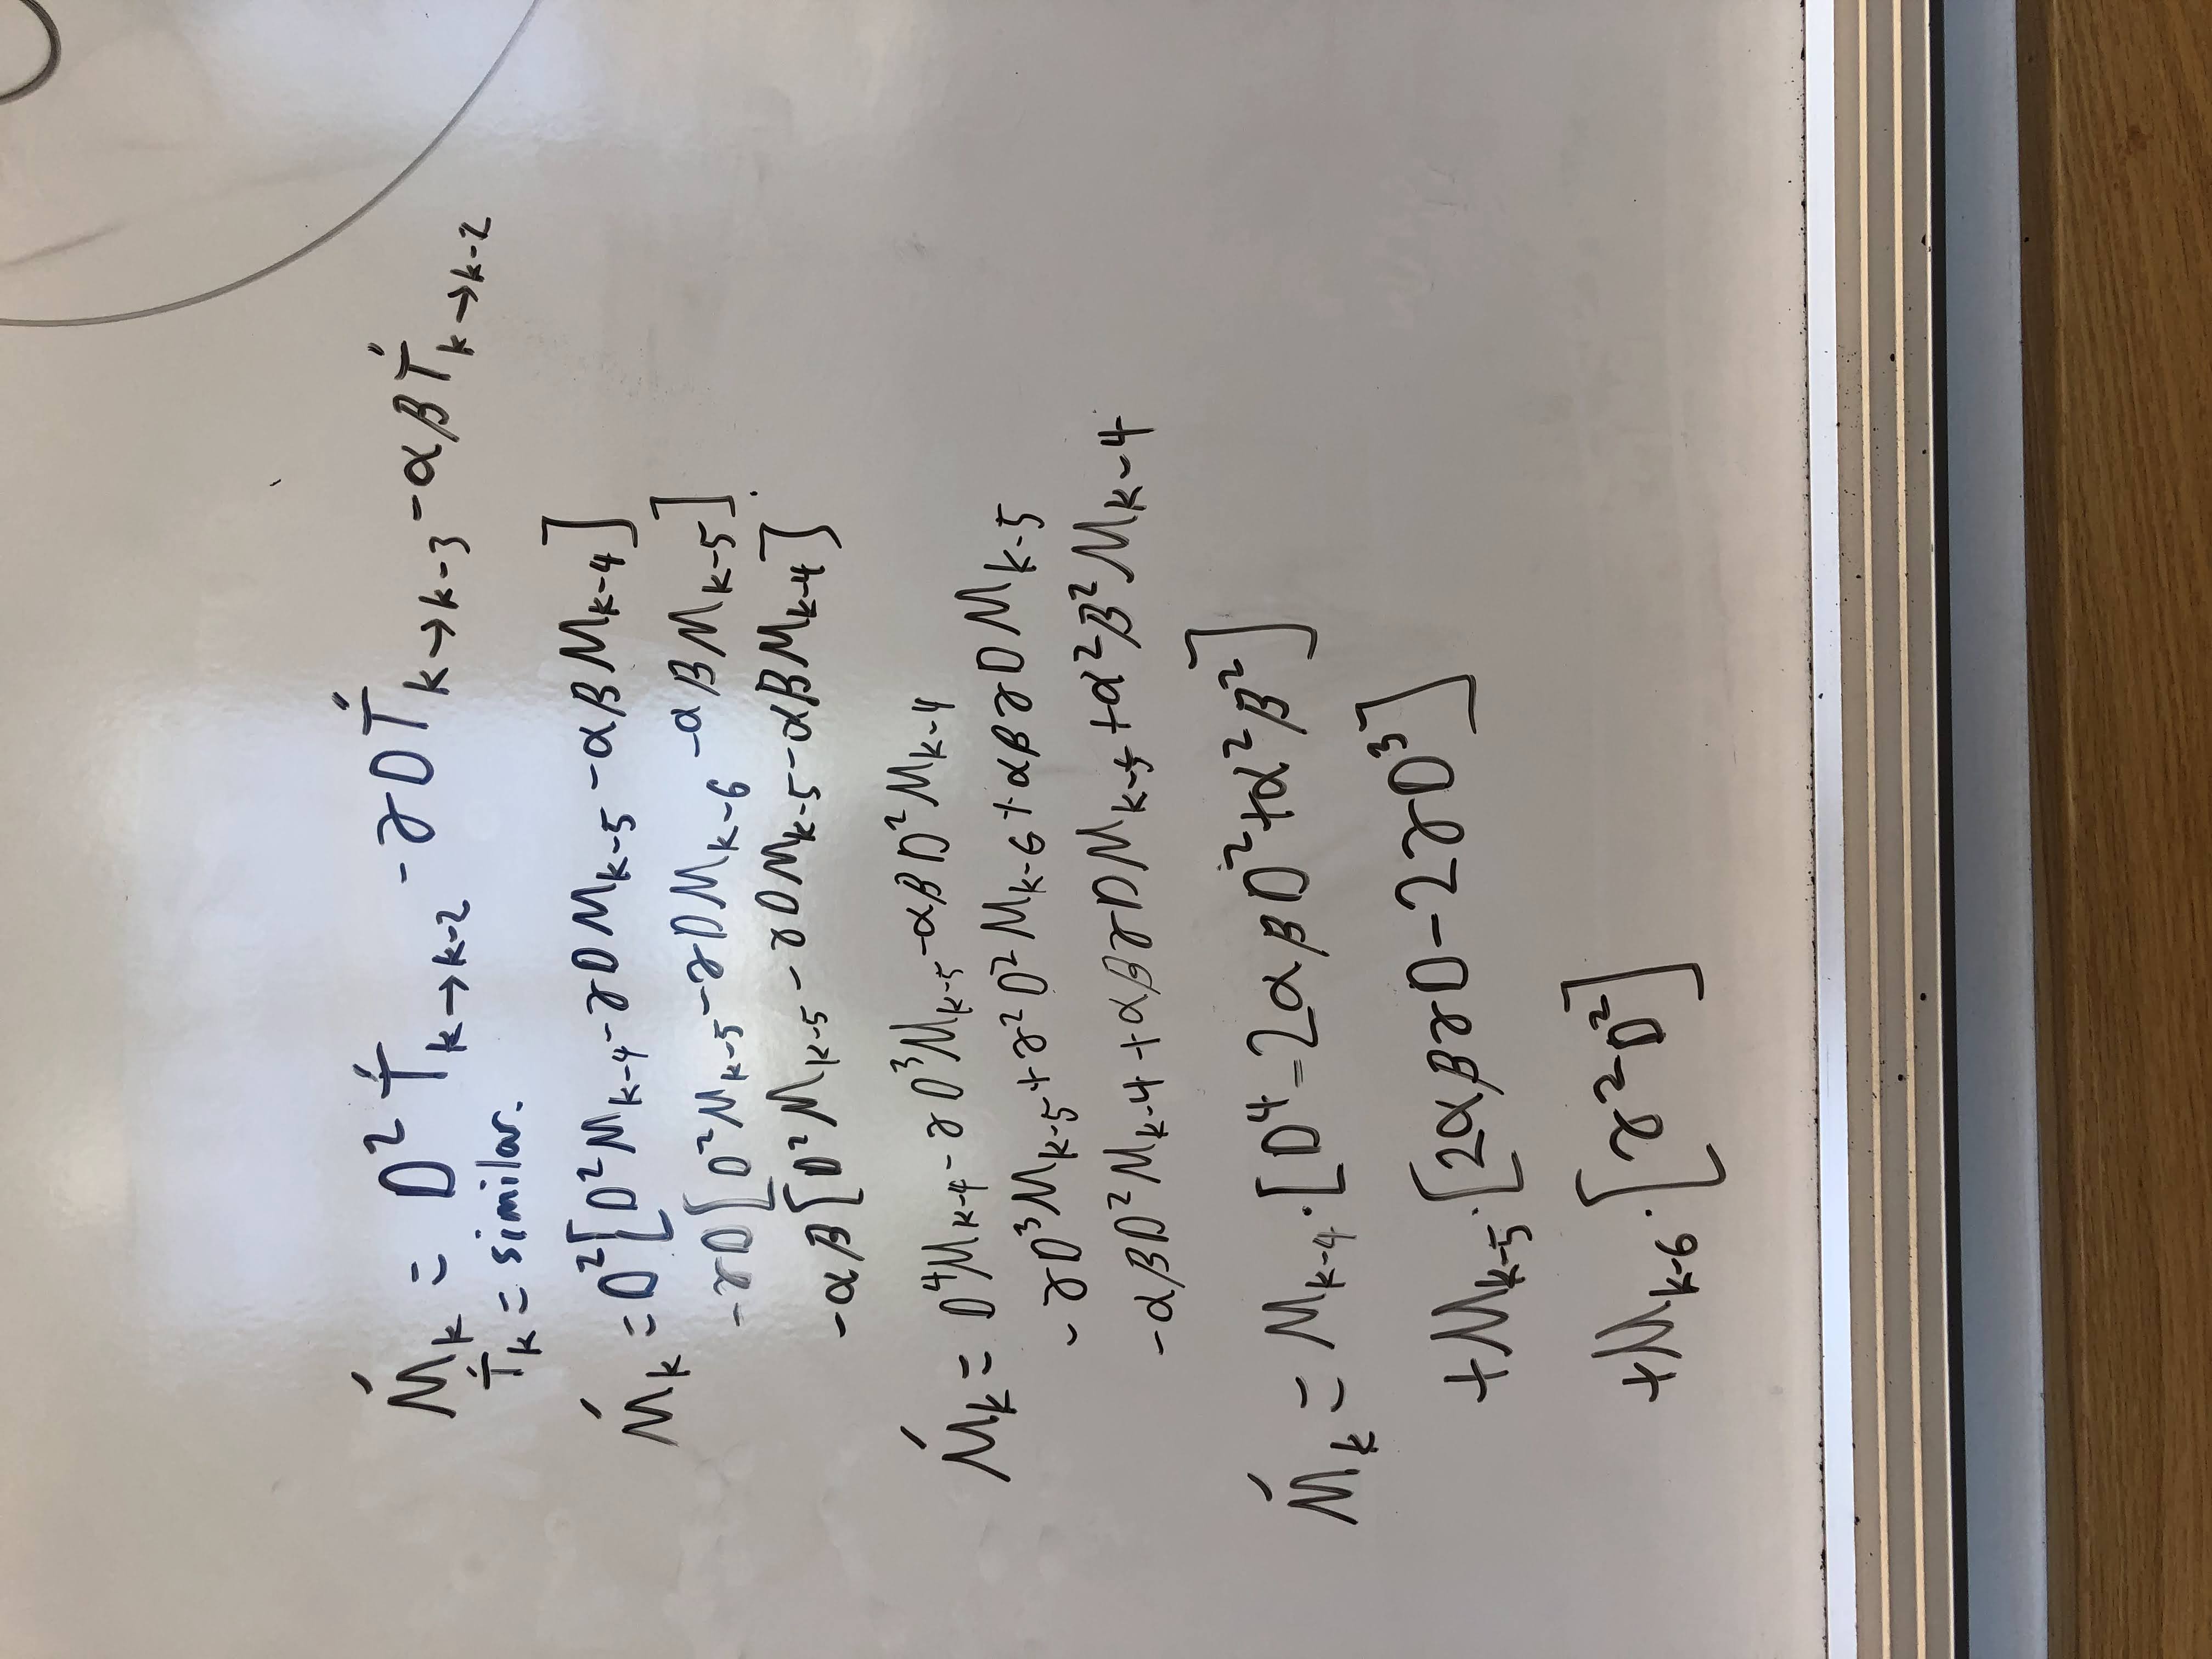 Ḿₖ = D² T́ₖ→ₖ₋₂ - γD T́ₖ→ₖ₋₃ - αβ T́ₖ→ₖ₋₂
T́ₖ = similar.
Ḿₖ = D²[D²Mₖ₋₄ - γDMₖ₋₅ - αβMₖ₋₄]
- γD[D²Mₖ₋₅ - γDMₖ₋₆ - αβMₖ₋₅]
- αβ[D²Mₖ₋₅ - γDMₖ₋₅ - αβMₖ₋₄]
Ḿₖ = D⁴Mₖ₋₄ - γD³Mₖ₋₅ - αβD²Mₖ₋₄
- γD³Mₖ₋₅ + γ²D²Mₖ₋₆ + αβγDMₖ₋₅
- αβD²Mₖ₋₄ + αβγDMₖ₋₅ + α²β²Mₖ₋₄
Ḿₖ = Mₖ₋₄·[D⁴ - 2αβD² + α²β²]
+ Mₖ₋₅·[2αβγD - 2γD³]
+ Mₖ₋₆·[γ²D²]